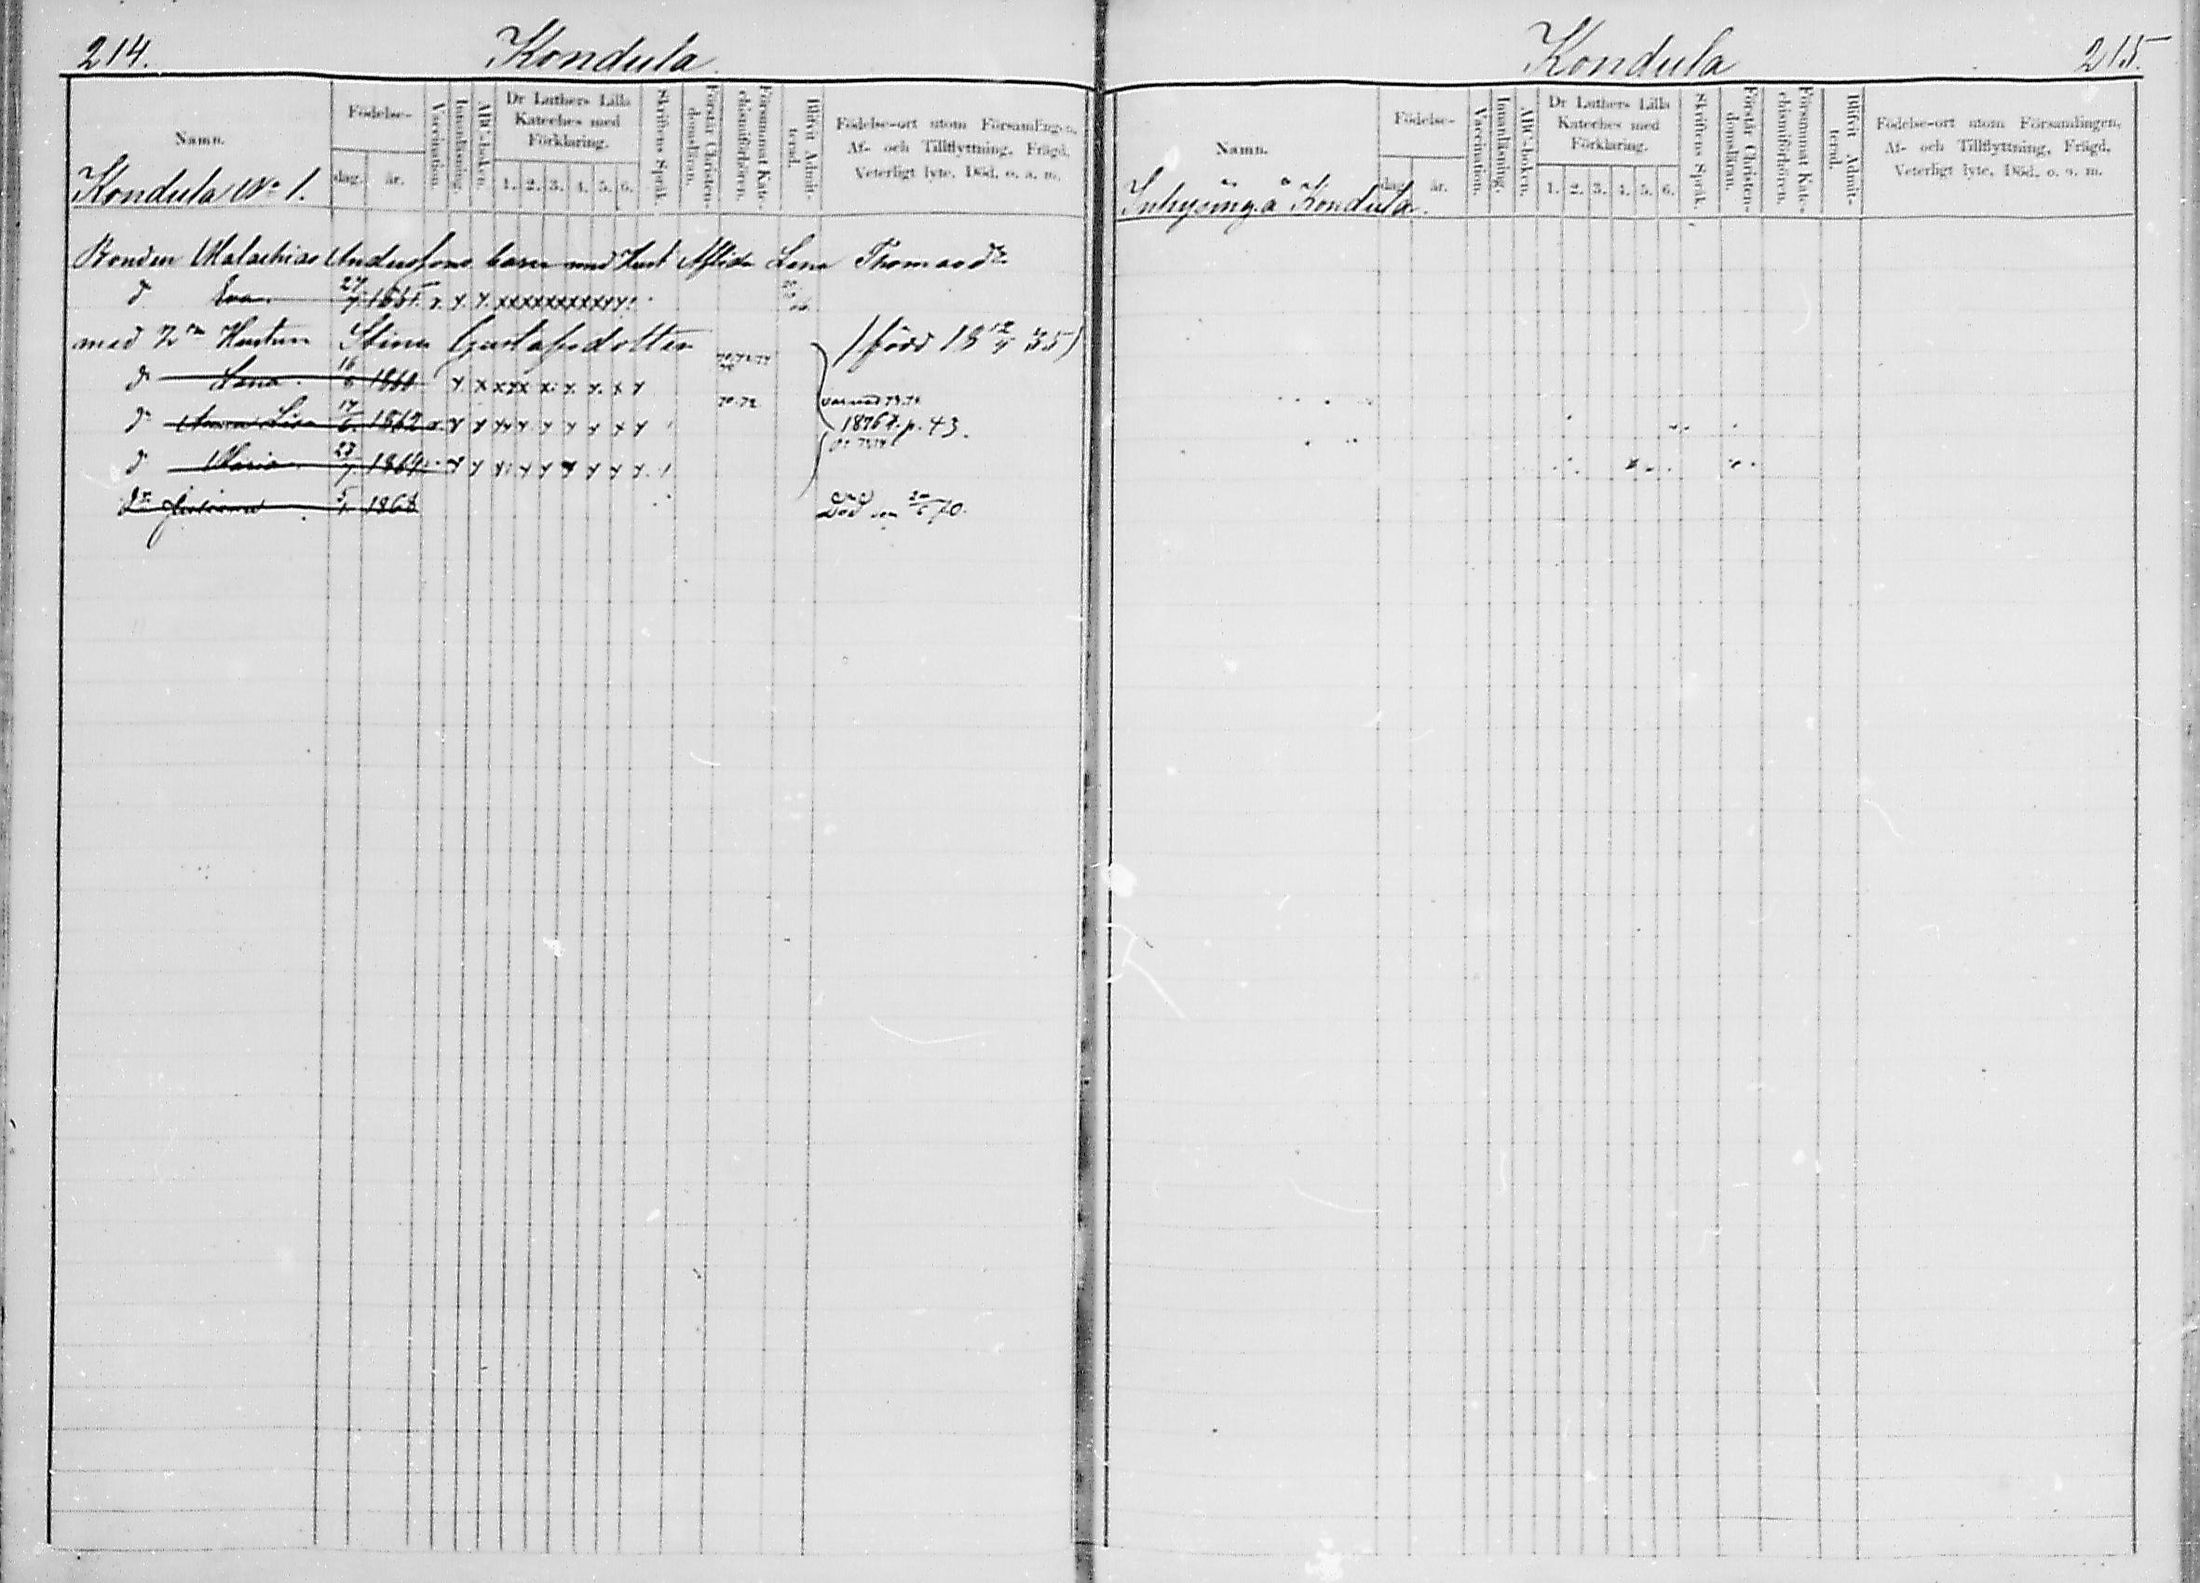 214. Kondula.
Namn.
Födelse-
dag. år.
Vaccination.
Innanläsning.
ABC-boken.
Dr Luthers Lilla Kateches med Förklaring.
1. 2. 3. 4. 5. 6.
Skriftens Språk.
Förstår Christen-domsläran.
Försummat Kate-chismiförhören.
Blifvit Admit-terad.
Födelse-ort utom Församlingen,
Af- och Tillflyttning, Frägd,
Veterligt lyte, Död, o. s. m.
Kondula No 1.
Bonden Malachias Anderssons barn med Hust Aflidn Lena Thomasdr
dr Eva. 27/7 1855.
med 2ra Hustrun Stina Gustafsdotter (född 18 12/4 35)
dr Lena. 16/6 1860 70.72.74
dr Anna Lisa 17/6 1862 70.72 1876 p. 43.
dr Maria 23/7 1864
dr Juliana 5/1 1868 Död 70.
Kondula 215.
Namn.
Födelse-
dag. år.
Vaccination.
Innanläsning.
ABC-boken.
Dr Luthers Lilla Kateches med Förklaring.
1. 2. 3. 4. 5. 6.
Skriftens Språk.
Förstår Christen-domsläran.
Försummat Kate-chismiförhören.
Blifvit Admit-terad.
Födelse-ort utom Församlingen,
Af- och Tillflyttning, Frägd,
Veterligt lyte, Död, o. s. m.
Inhysing.å Kondula.